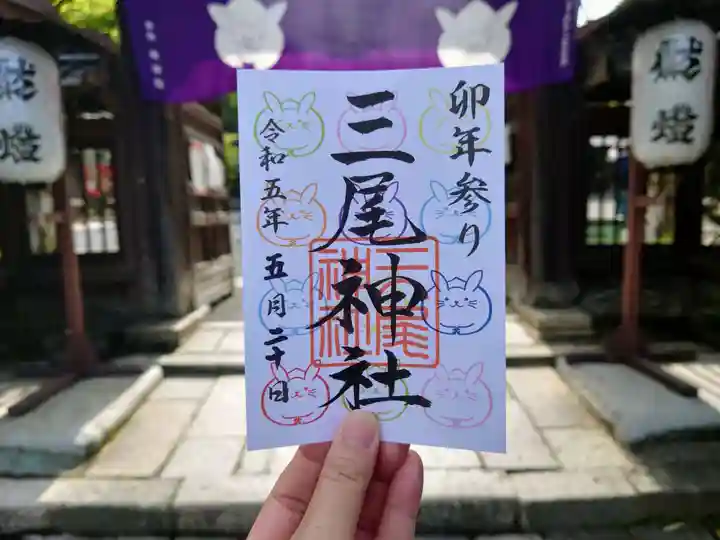 卯年参り
三尾神社
令和五年 五月二十日
献燈
献燈